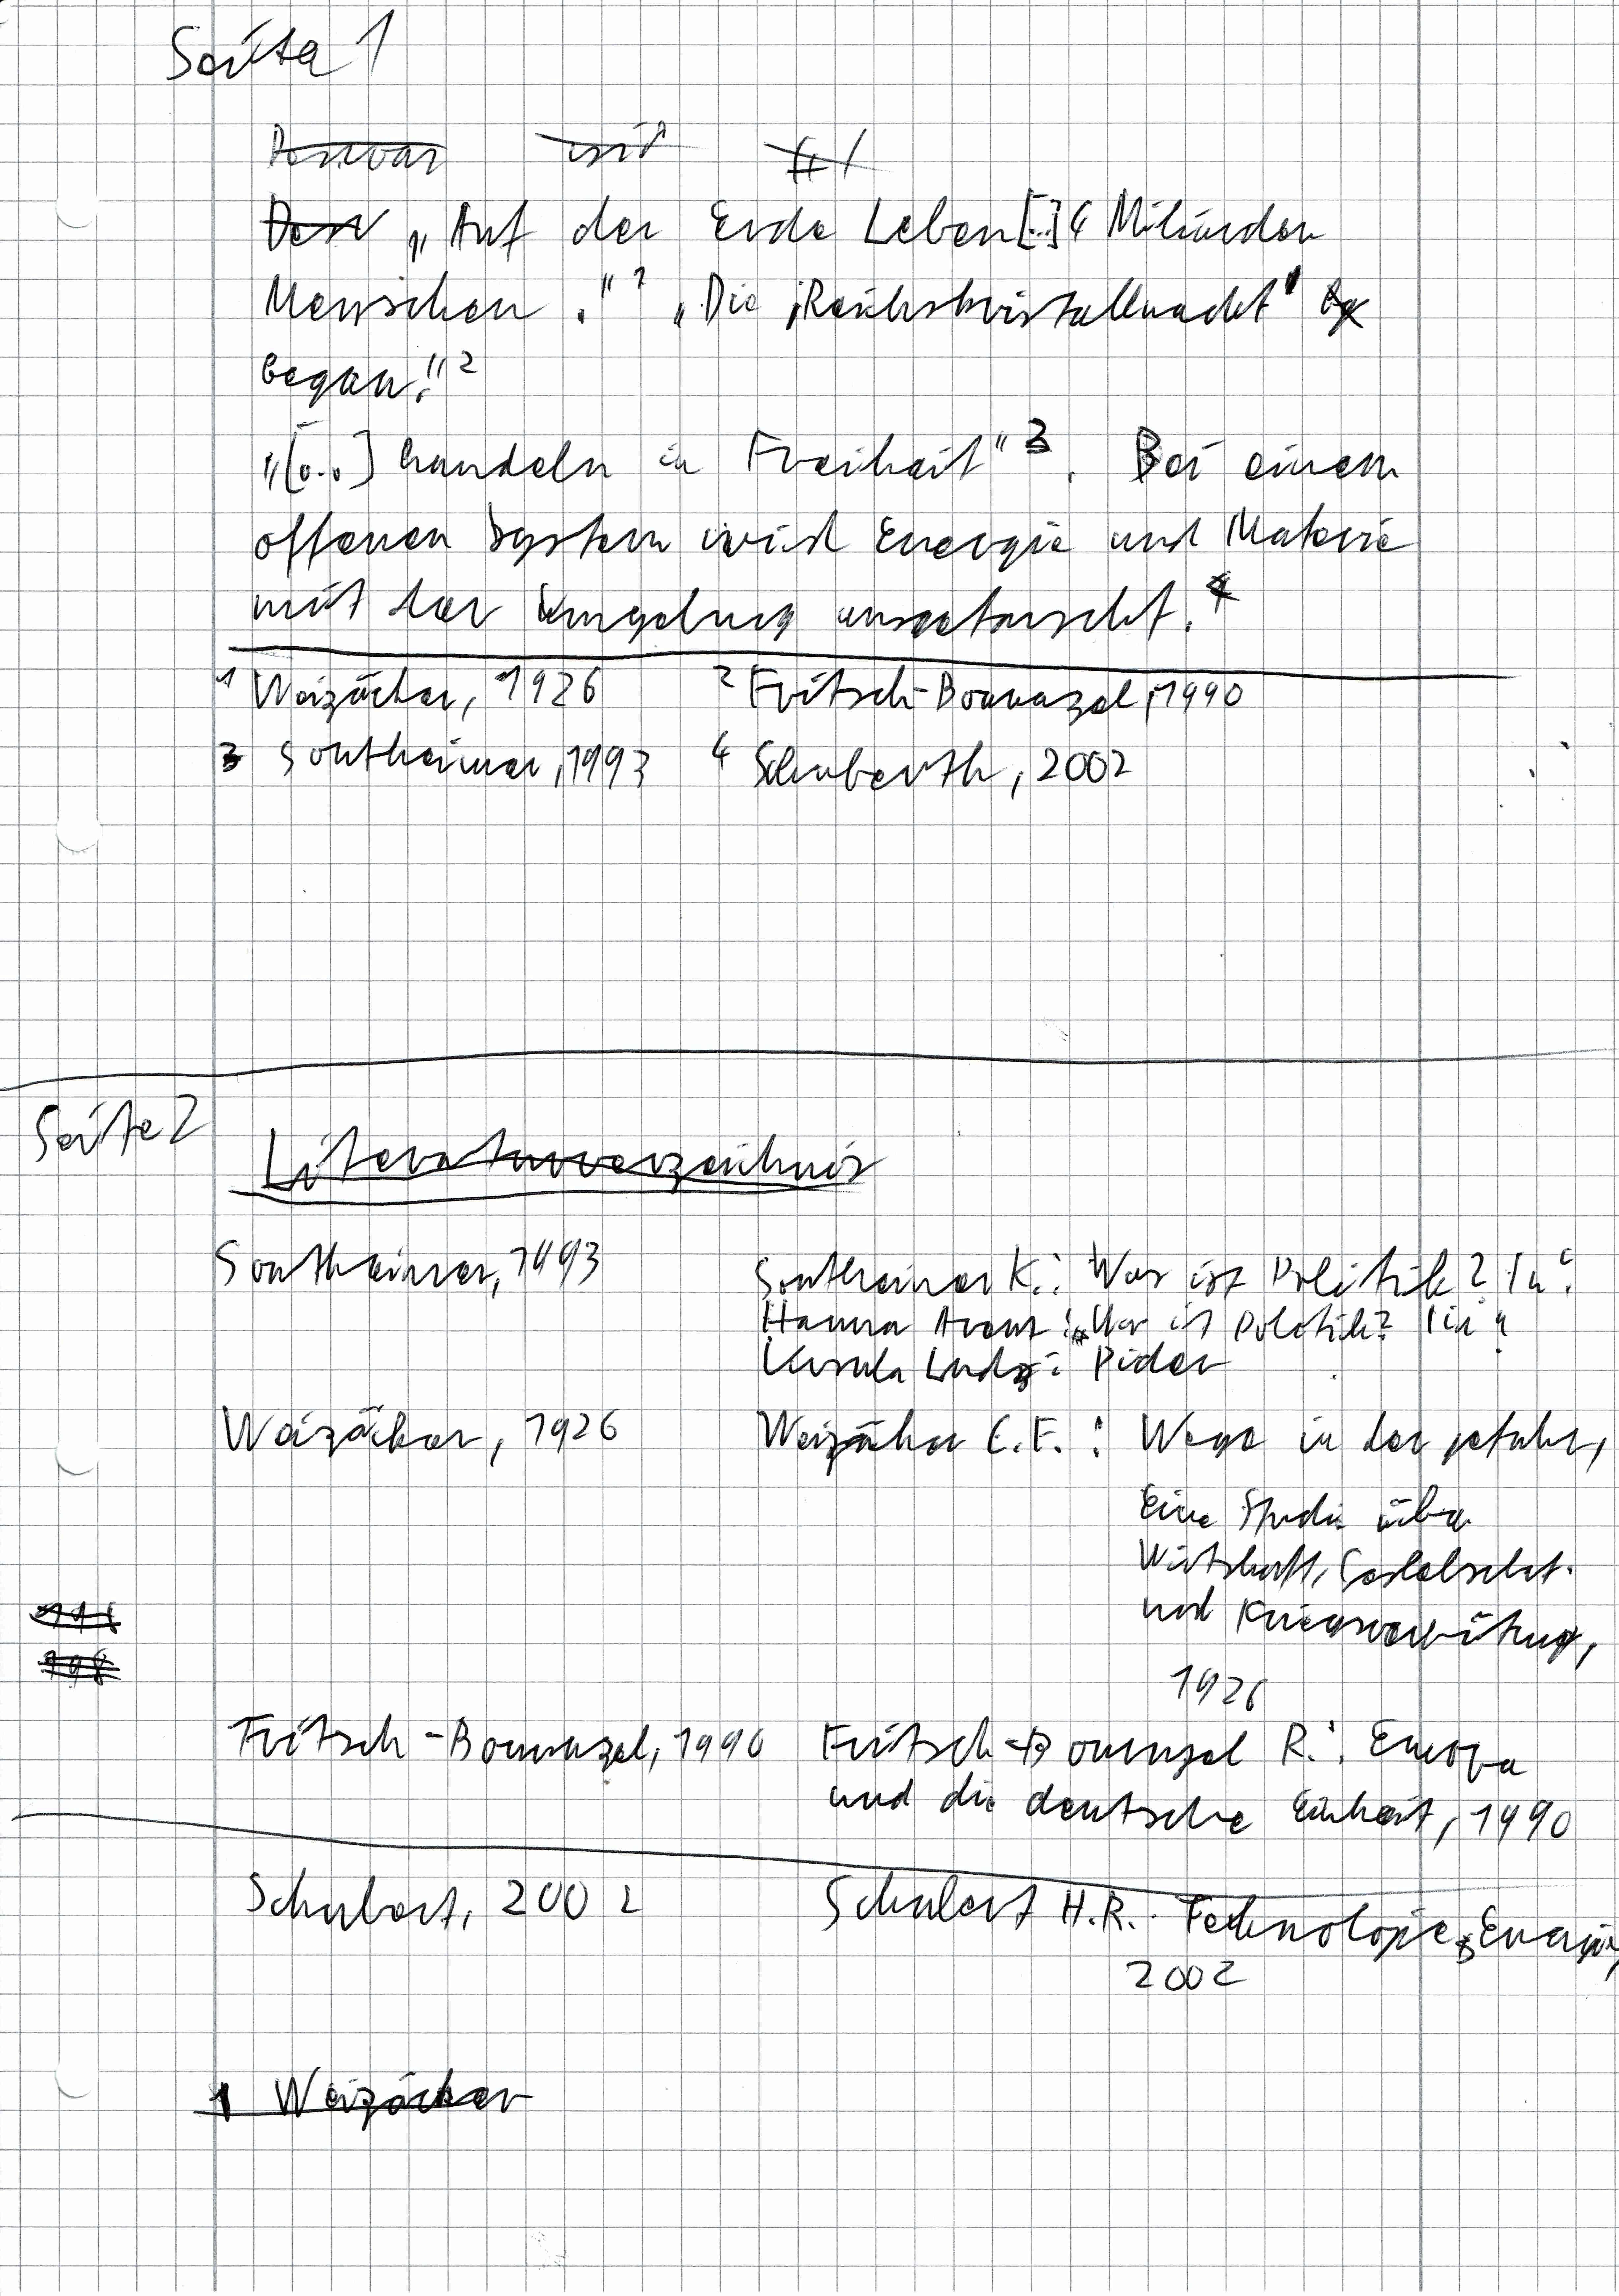 Seite 1
Der „Auf der Erde Leben [..] 4 Miliarden
Menschen." 1 „Die ,Reichskristallnacht'
began." 2
„[...] handeln in Freiheit" 3. Bei einem
offenen System wird Energie und Materie
mit der Umgebung ausgetauscht. 4
1 Weizäcker, 1926 2 Fritsch-Bournazel, 1990
3 Sontheimer, 1993 4 Schuberth, 2002
Seite 2
Literaturverzeichnis
Sontheimer, 1993 Sontheimer K.: Was ist Politik? In:
Hanna Arent: „Was ist Politik? In:
Ursula Ludz: Pider
Weizäcker, 1926 Weizäcker C.F.: Wege in der gefahr,
Eine Studie über
Wirtschaft, Gesellschaft
und Kriegsverhütung,
1926
Fritsch-Bournazel, 1990 Fritsch-Bournazel R.: Europa
und die deutsche Einheit, 1990
Schubert, 2002 Schubert H.R.. Technologie, Energie,
2002
1 Weizäcker